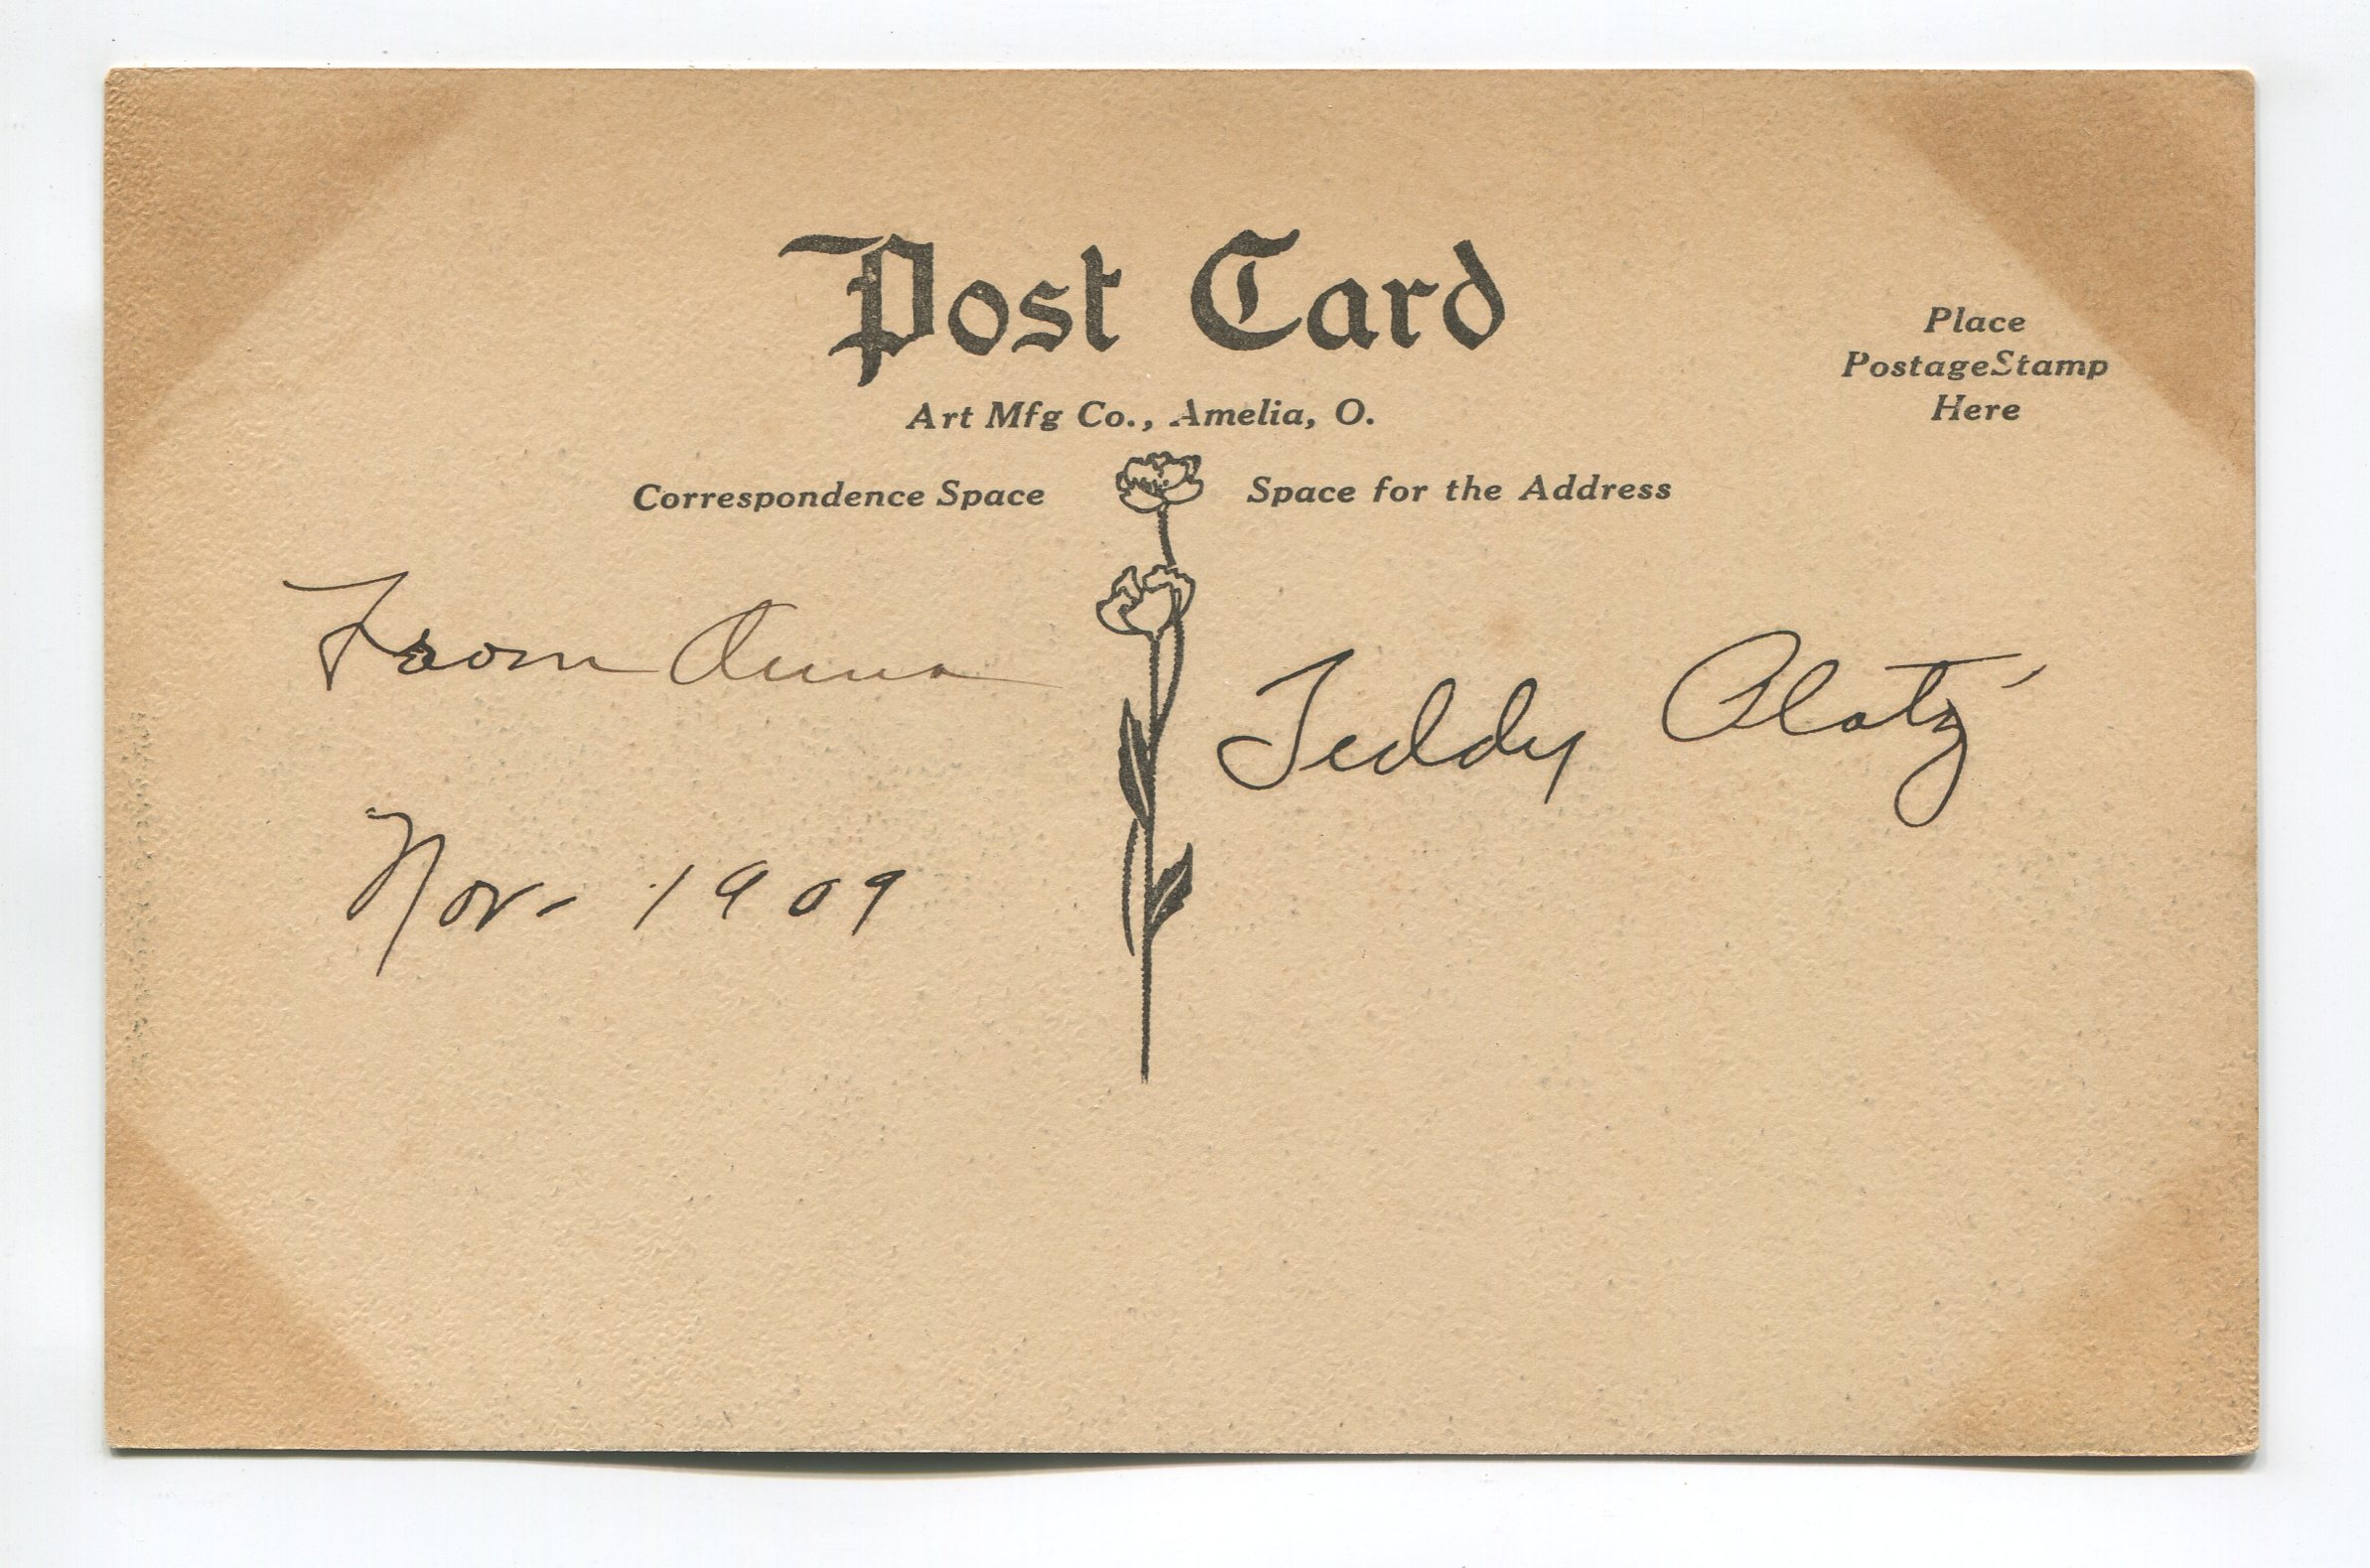 Post Card
Art Mfg Co., Amelia, O.
Place
Postage Stamp
Here
Correspondence Space
Space for the Address
From Anna
Nov- 1909
Teddy Platz